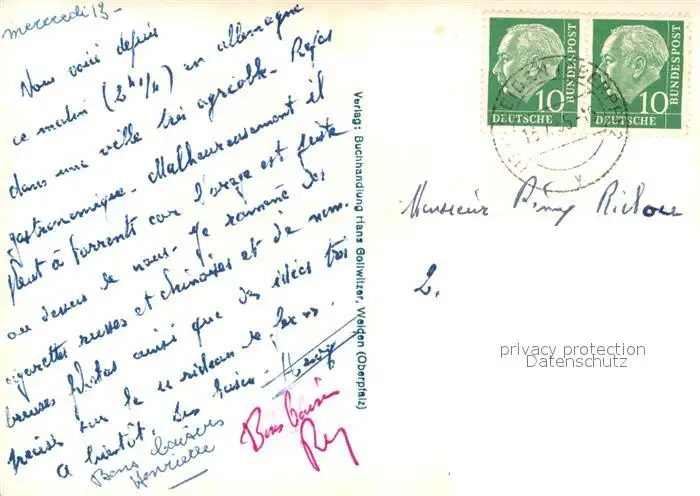 mercredi 13 -
Nous voici depuis
ce matin (2h 1/4) en allemagne
dans une ville très agréable - Repas
gastronomique. Malheureusement il
pleut à torrents car l'orage est juste
au dessus de nous - Je ramène des
cigarettes russes et chinoises et de nom-
breuses photos ainsi que des idées très
précises sur le "rideau de fer".
A bientôt. Des baisers -
Bons baisers
Henriette
Bons baisers
Verlag: Buchhandlung Hans Gollwitzer, Weiden (Oberpfalz)
10
DEUTSCHE
BUNDESPOST
10
DEUTSCHE
BUNDESPOST
Monsieur
2.
privacy protection
Datenschutz